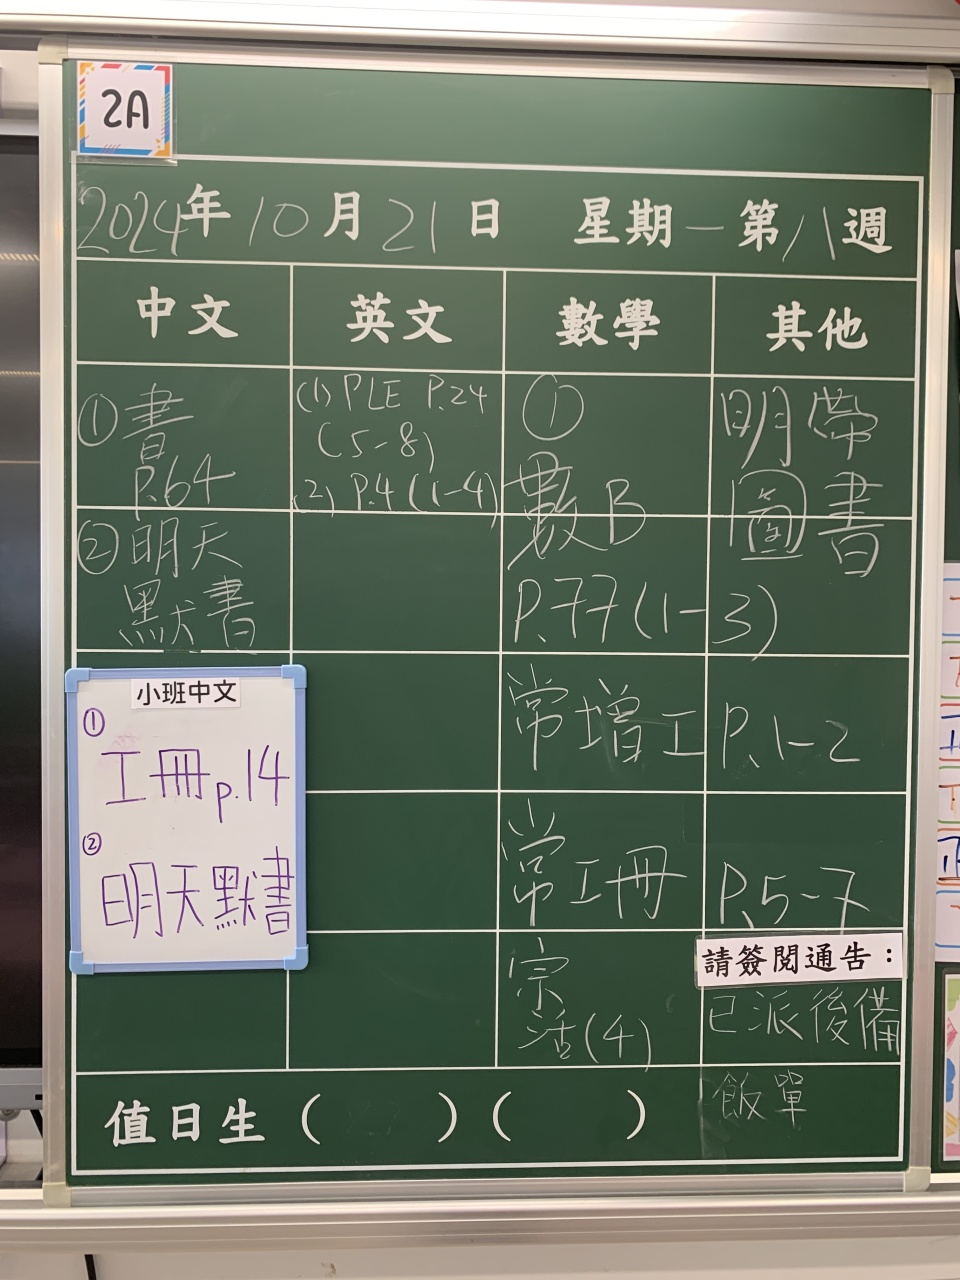 2A
2024年10月21日 星期一第八週
中文 英文 數學 其他
①書
P.64
②明天
默書
小班中文
①
工冊p.14
②
明天默書
(1) PLE P.24
(5-8)
(2) P.4 (1-4)
①
數B
P.77(1-3)
常增工 P.1-2
常工冊 P.5-7
宗
活(4)
明帶
圖書
請簽閱通告：
已派後備
飯單
值日生（ ）（ ）